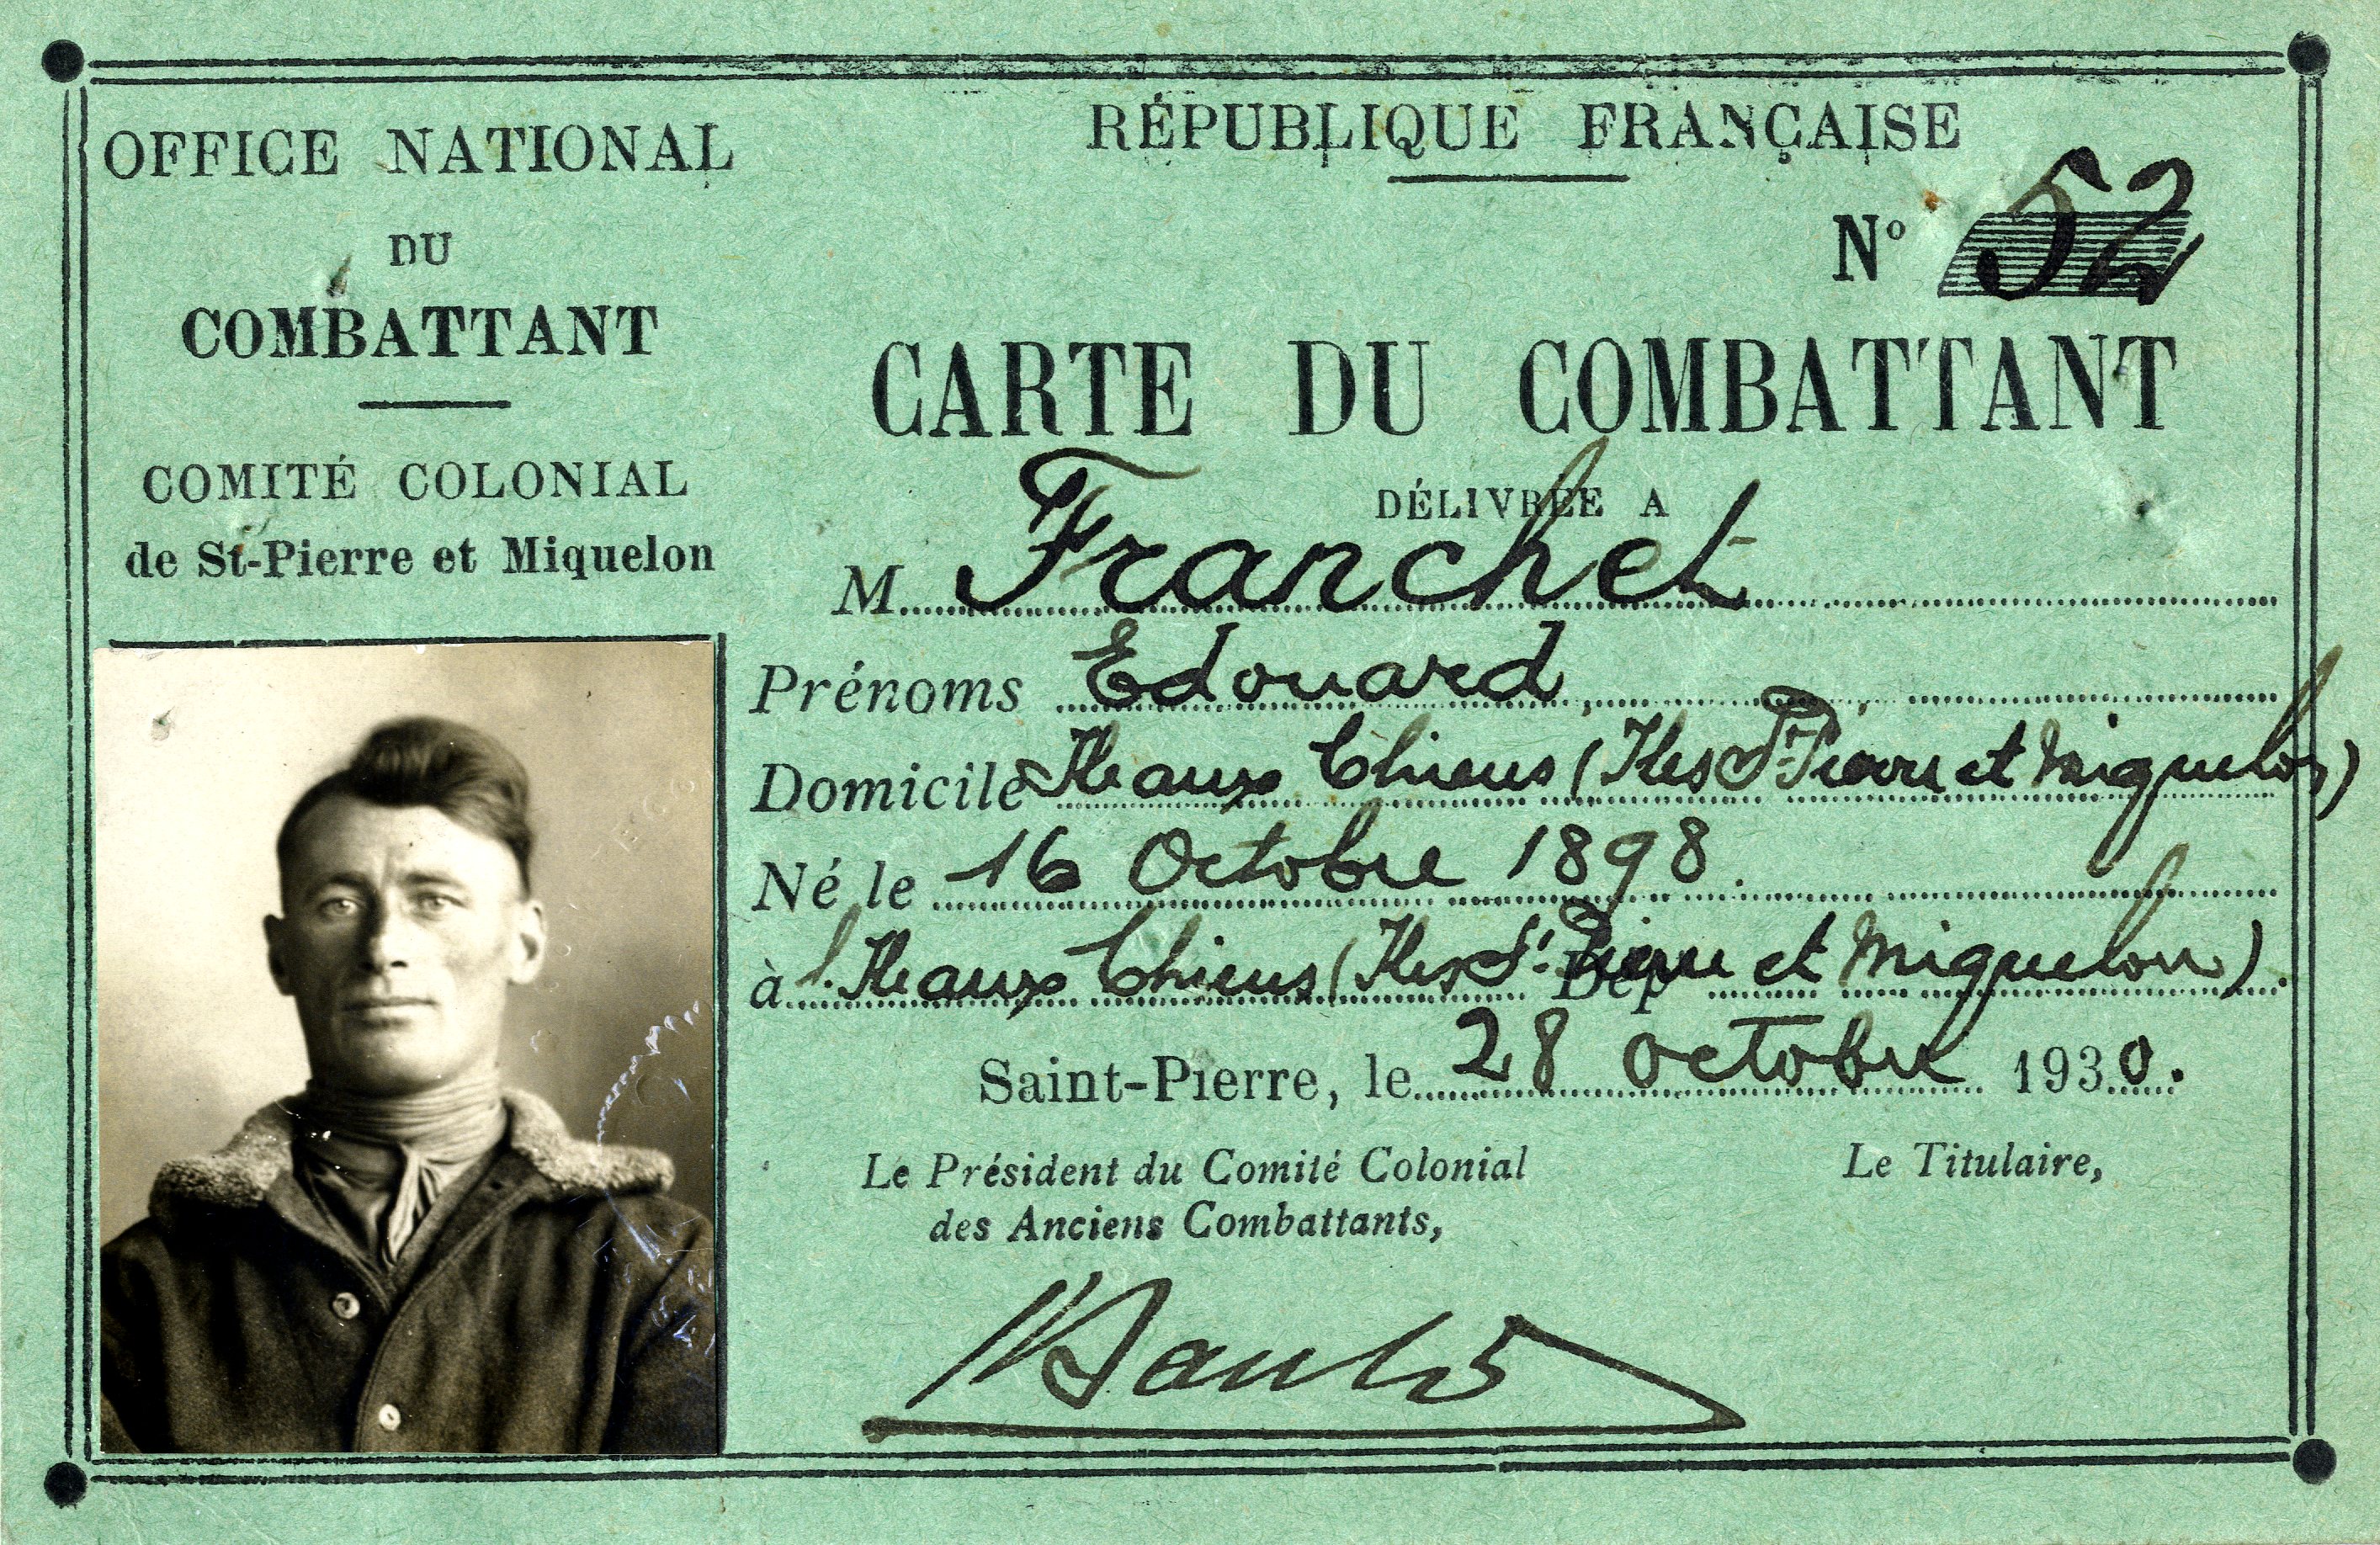 OFFICE NATIONAL
DU
COMBATTANT
COMITÉ COLONIAL
de St-Pierre et Miquelon
RÉPUBLIQUE FRANÇAISE
Nº 52
CARTE DU COMBATTANT
DÉLIVRÉE A
M Franchet
Prénoms Edouard
Domicile Ile aux Chiens (Iles St Pierre et Miquelon)
Né le 16 Octobre 1898
à l'Ile aux Chiens (Iles St Pierre et Miquelon). Dép
Saint-Pierre, le 28 octobre 1930.
Le Président du Comité Colonial
des Anciens Combattants,
Le Titulaire,